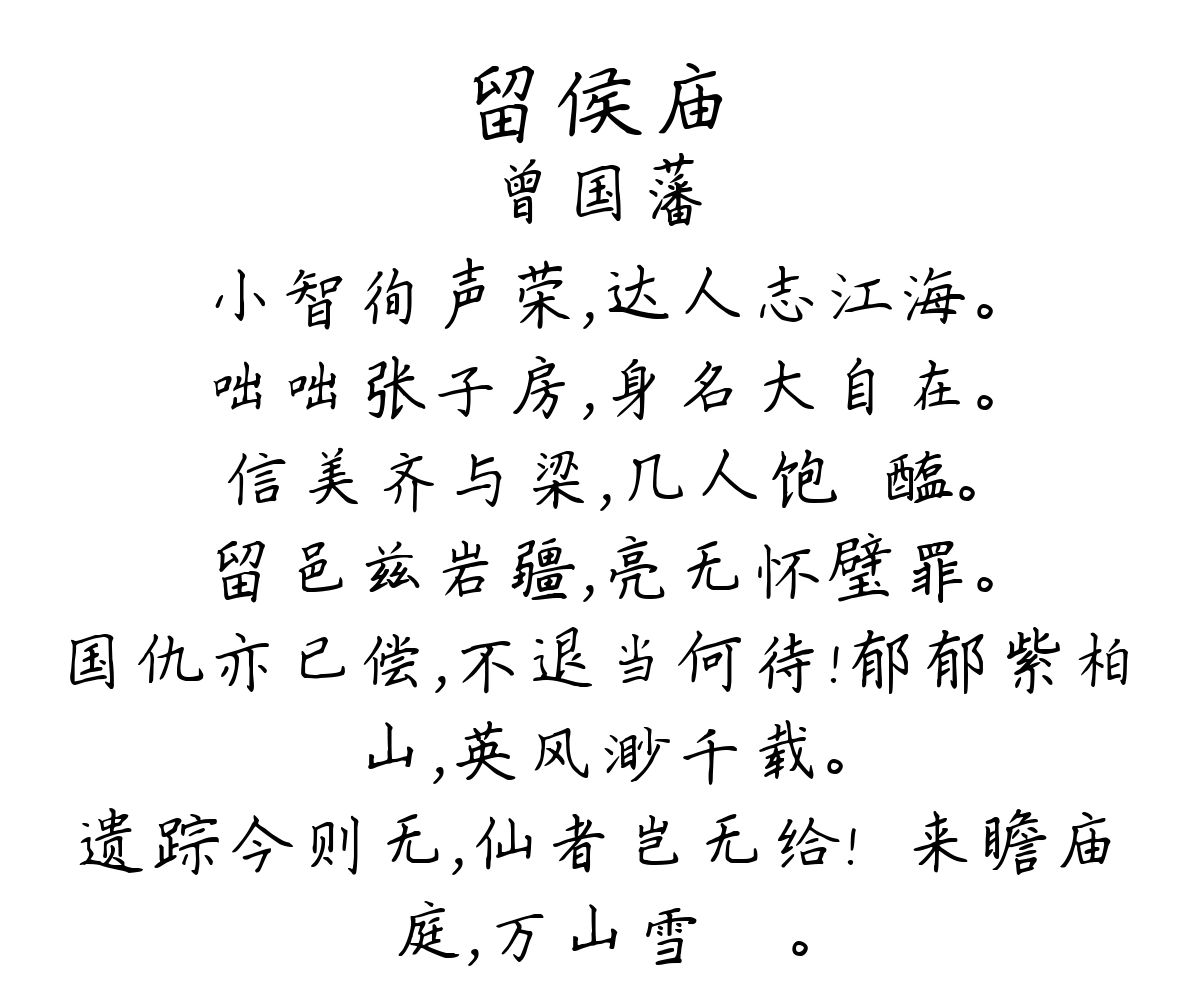 留侯庙
曾国藩
小智徇声荣,达人志江海。
咄咄张子房,身名大自在。
信美齐与梁,几人饱 醢。
留邑兹岩疆,亮无怀璧罪。
国仇亦已偿,不退当何待!郁郁紫柏
山,英风渺千载。
遗踪今则无,仙者岂无给! 来瞻庙
庭,万山雪 。